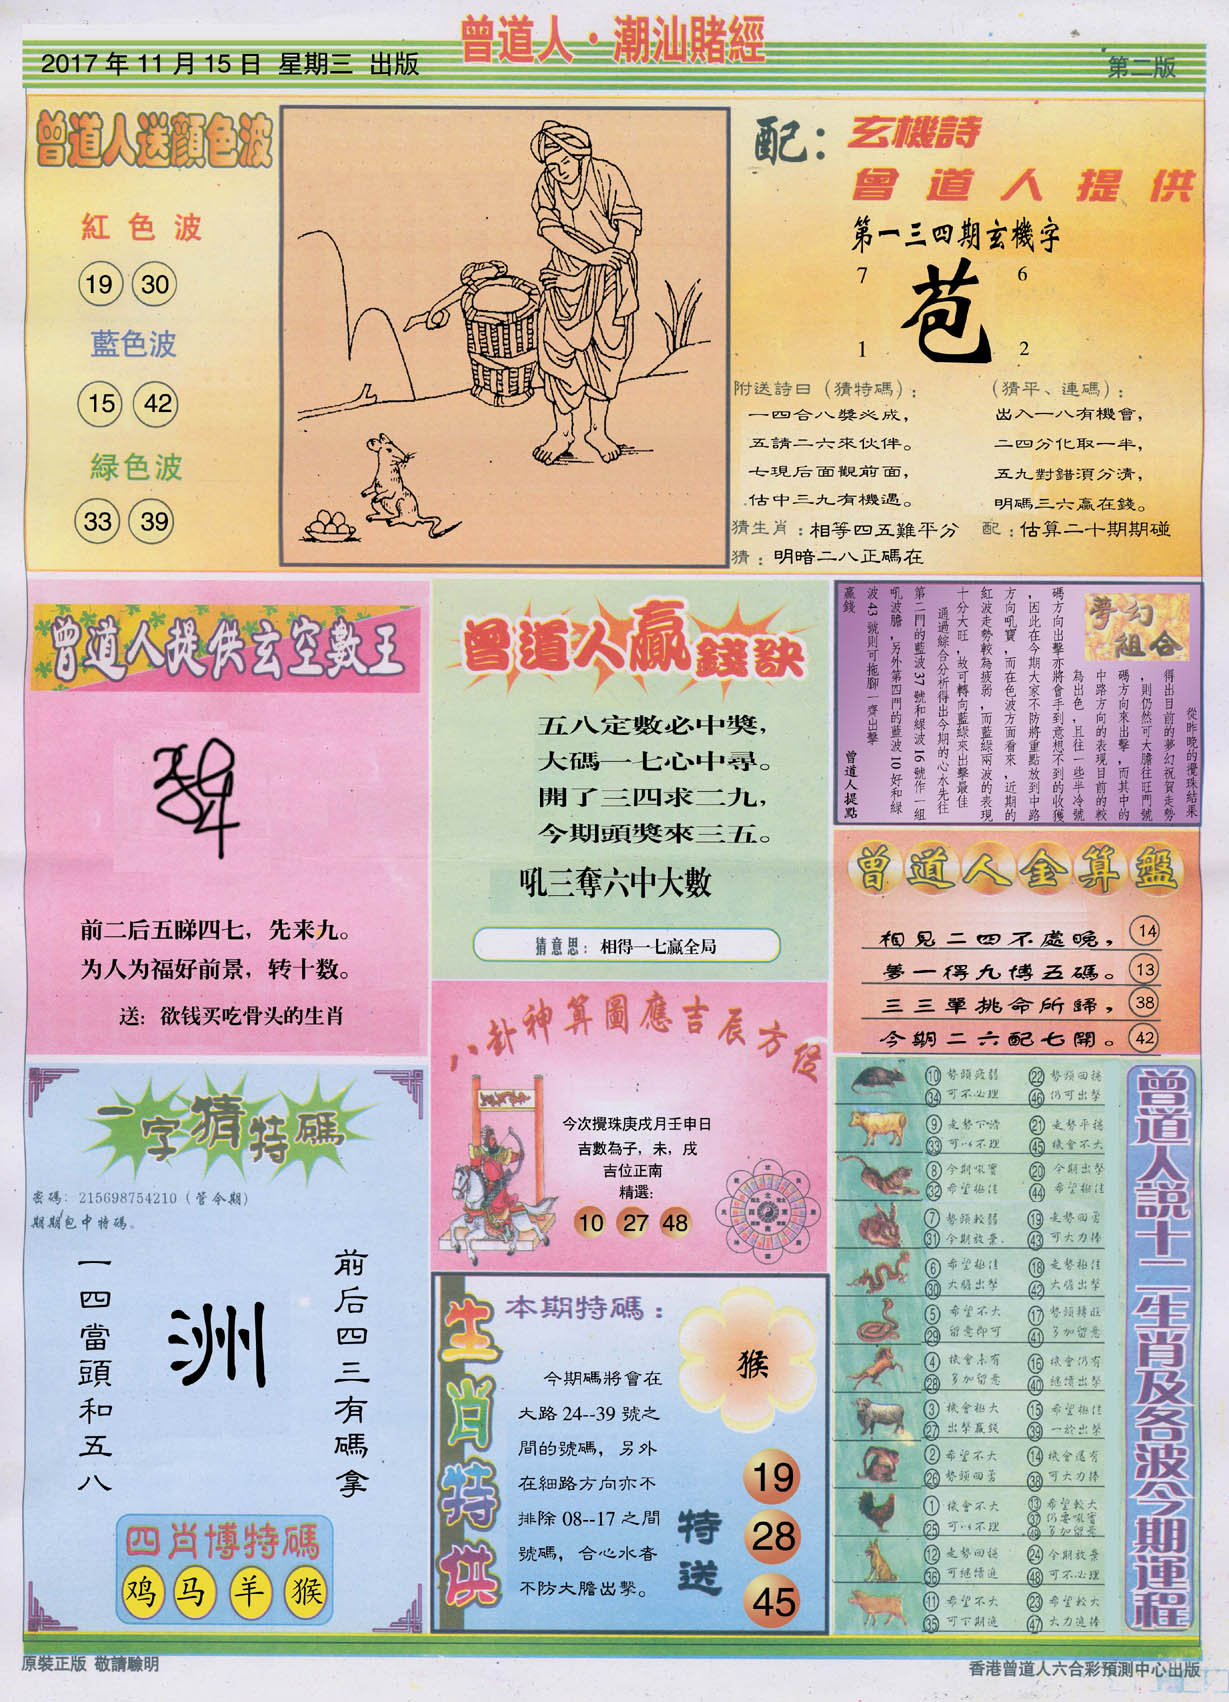 曾道人·潮汕賭經
2017年11月15日 星期三 出版
第二版
曾道人送顏色波
紅色波
19 30
藍色波
15 42
緑色波
33 39
配：玄機詩
曾道人提供
第一三四期玄機字
7 6
苞
1 2
附送詩曰（猜特碼）：
一四合八獎必成，
五請二六來伙伴。
七現后面觀前面，
估中三九有機遇。
（猜平、連碼）：
出入一八有機會，
二四分化取一半，
五九對錯須分清，
明碼三六贏在錢。
猜生肖：相等四五難平分
配：估算二十期期碰
猜：明暗二八正碼在
曾道人提供玄空數王
前二后五睇四七，先来九。
为人为福好前景，转十数。
送：欲钱买吃骨头的生肖
曾道人贏錢訣
五八定數必中獎，
大碼一七心中尋。
開了三四求二九，
今期頭獎來三五。
吼三奪六中大數
猜意思：相得一七贏全局
夢幻組合
從昨晚的攪珠結果
得出目前的夢幻祝賀走勢
，則仍然可大膽往旺門號
碼方向來出擊，而其中的
中路方向的表現目前的較
為出色，且往一些半冷號
碼方向出擊亦將會手到意想不到的收獲
，因此在今期大家不防將重點放到中路
方向吼寶，而在色波方面看來，近期的
紅波走勢較為疲弱，而藍綠兩波的表現
十分大旺，故可轉向藍綠來出擊最佳
通過綜合分析得出今期的心水先往
第二門的藍波37號和綠波16號作一組
吼波膽，另外第四門的藍波10好和綠
波43號則可拖腳一齊出擊
贏錢
曾道人提點
曾道人金算盤
相見二四不處晚，14
夢一得九博五碼。13
三三單挑命所歸，38
今期二六配七開。42
八卦神算圖應吉辰方位
今次攪珠庚戌月壬申日
吉數為子，未，戌
吉位正南
精選：
10 27 48
一字猜特碼
密碼：215698754210（管今期）
期期包中特碼。
前后四三有碼拿
洲
一四當頭和五八
四肖博特碼
鸡 马 羊 猴
生肖特供
本期特碼：
猴
今期碼將會在
大路24--39號之
間的號碼，另外
在細路方向亦不
排除08--17之間
號碼，合心水者
不防大膽出擊。
特送
19
28
45
曾道人說十二生肖及各波今期運程
10 勢頭疲弱 22 勢頭回穩
34 可不必理 46 仍可出擊
9 走勢下滑 21 走勢平穩
33 可以不理 45 機會不大
8 今期吼實 20 今期出擊
32 希望極佳 44 希望極佳
7 勢頭較弱 19 走勢回勇
31 今期放棄 43 可大力捧
6 希望極佳 18 走勢極佳
30 大膽出擊 42 大膽出擊
5 希望不大 17 勢頭轉旺
29 留意即可 41 多加留意
4 機會未有 16 機會仍有
28 多加留意 40 繼續出擊
3 機會極大 15 希望極佳
27 出擊贏錢 39 一於出擊
2 希望不大 14 機會還有
26 勢頭回勇 38 可大力捧
1 機會不大 13 希望較大
25 可以不理 37 仍要吼實
49 多加留意
12 走勢回穩 24 今期放棄
36 可繼續追 48 可不必理
11 希望不大 23 希望較大
35 可下期追 47 大力追捧
原裝正版 敬請驗明
香港曾道人六合彩預測中心出版